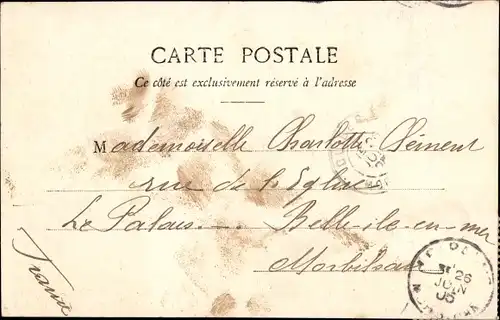 CARTE POSTALE
Ce côté est exclusivement réservé à l'adresse
Mademoiselle Charlotte Clément
rue de l'Eglise
Le Palais. Belle-ile-en-mer
Morbihan
France
26
JUIN
05